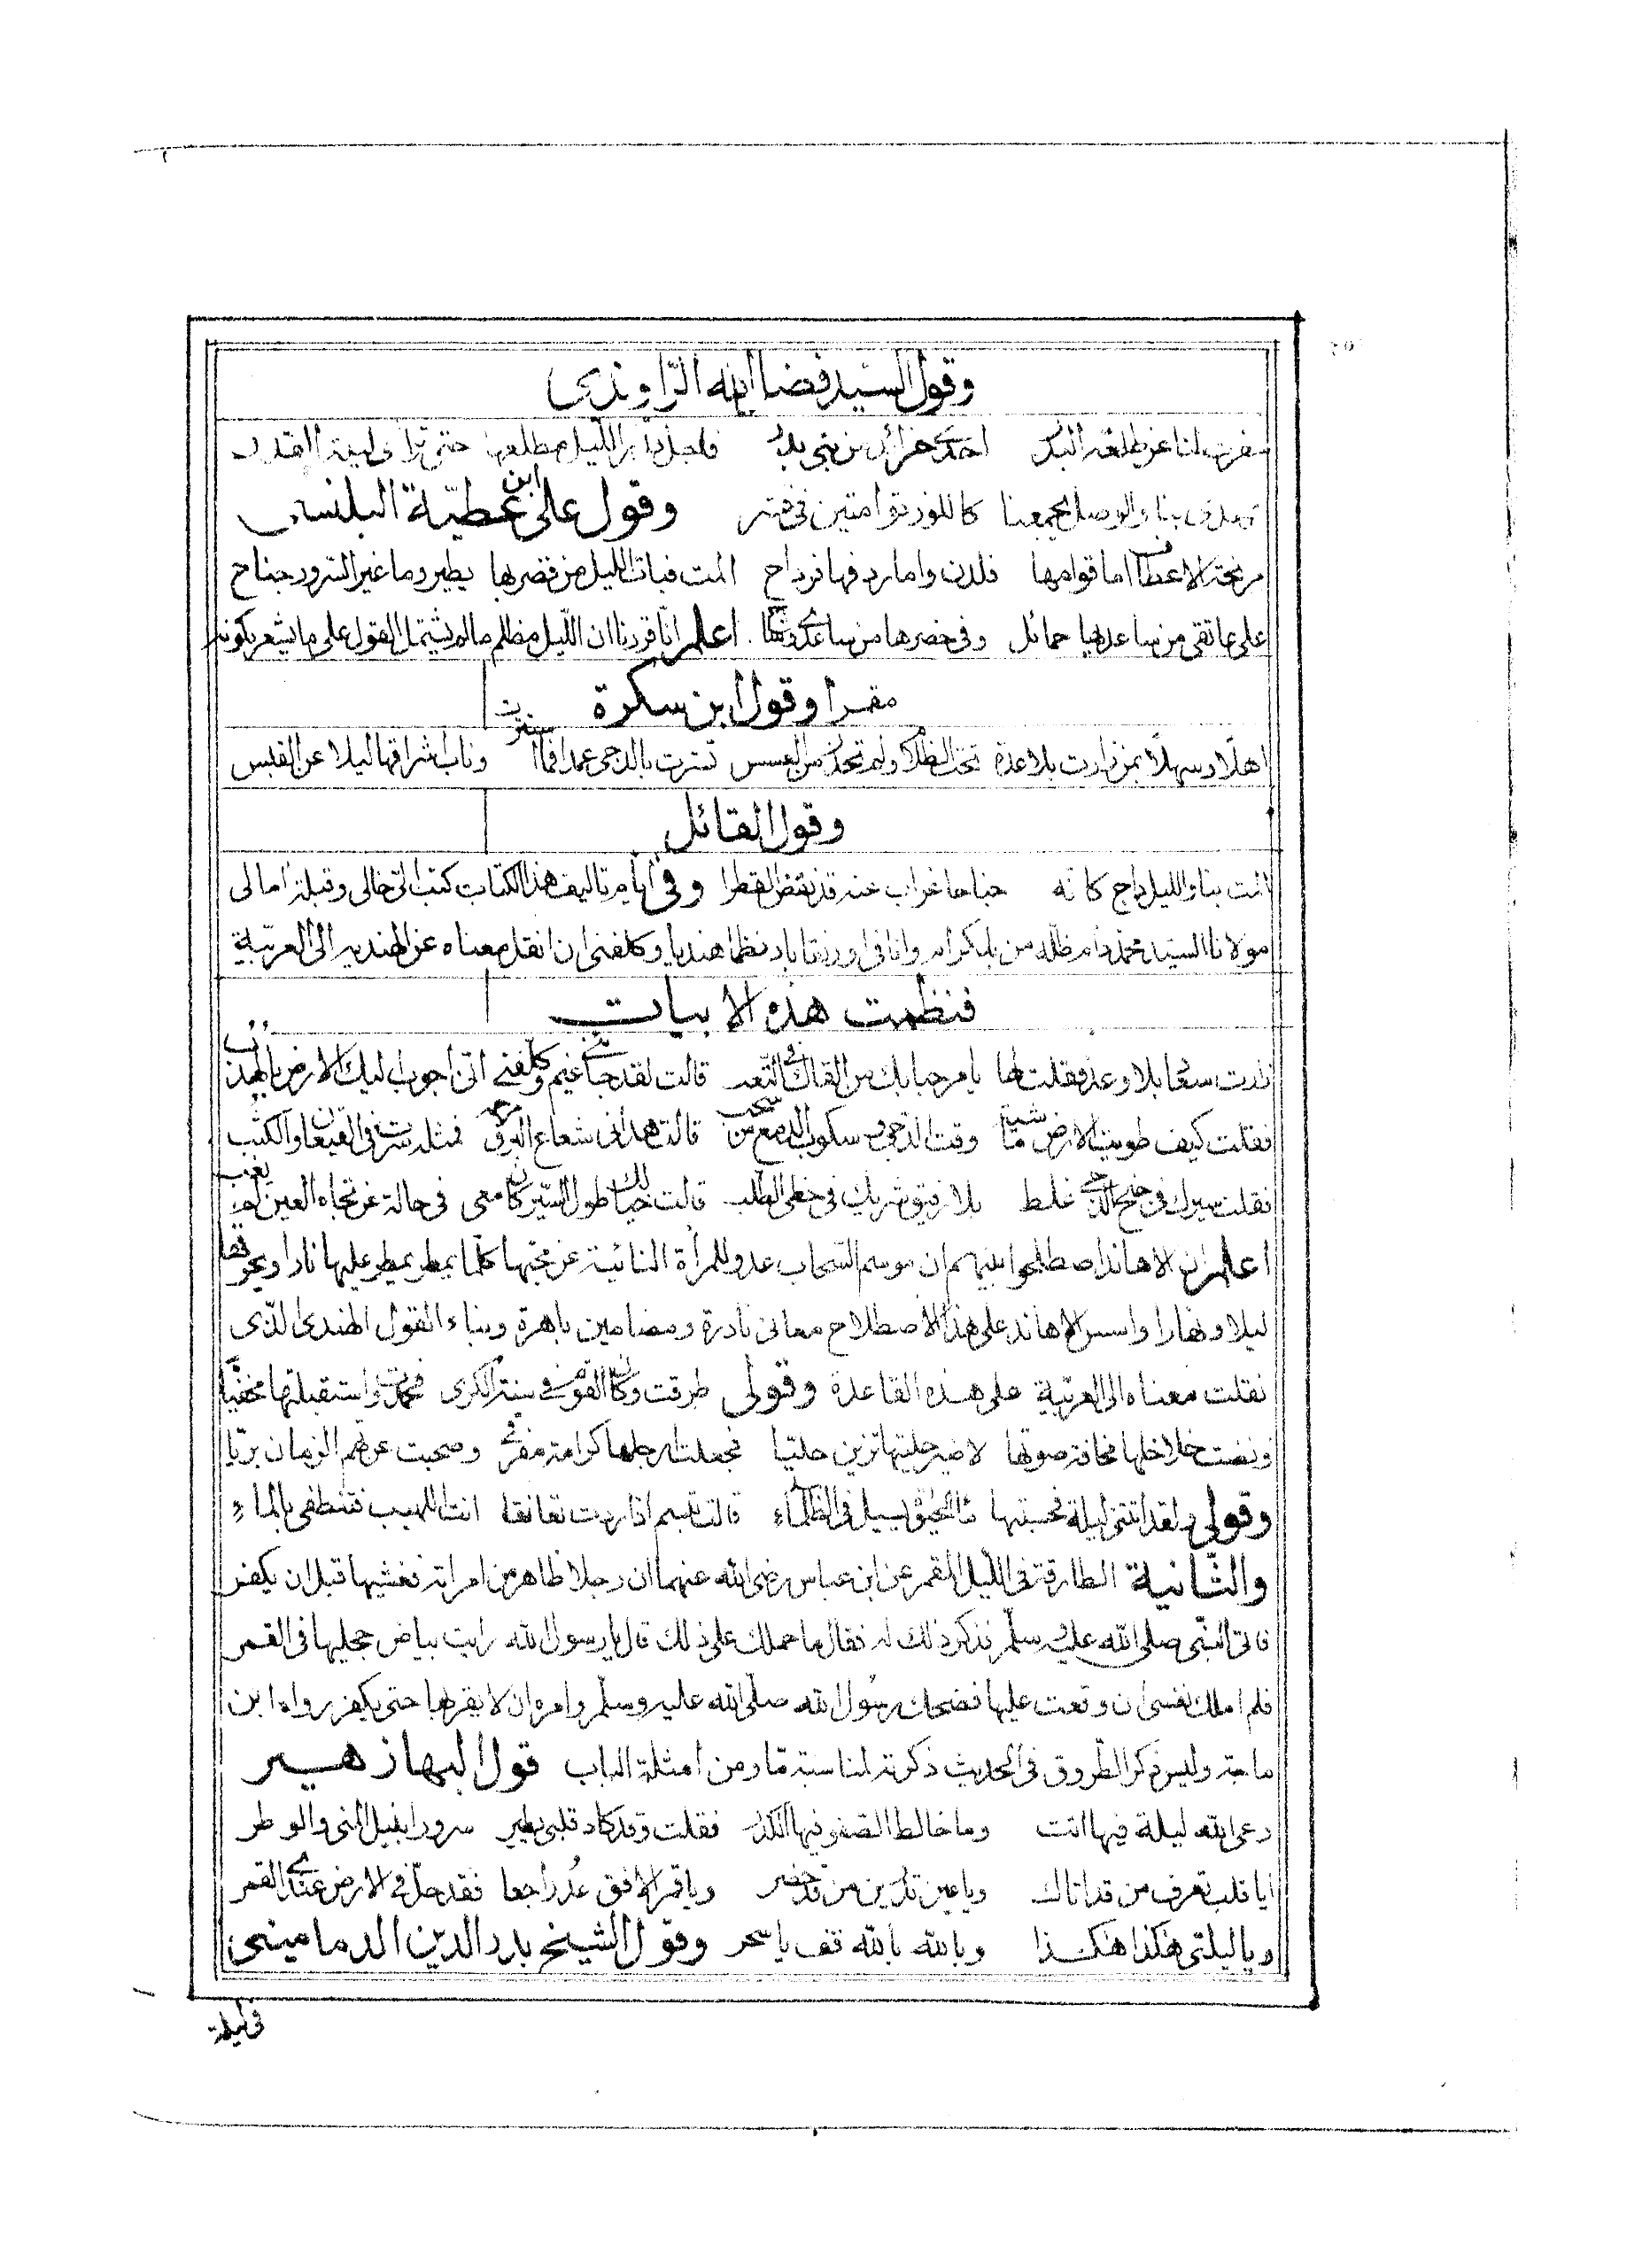 وقول السيد فضل الله الراوندي
سفرت لنا عن طلعة البدر احدى خرائد بني بدر حتى ترائ ليلة القدر
والوصل يجمعنا كاللوزتوامتين في قشر وقول علي ابن عطية البلنسي
مرنحة الاعطاف اما قوامها فلدن واما ردفها فرداح المت فبات الليل من قصر بها يطير وما غير السرور جناح
على عاتقي من ساعديها حمائل وفي خصرها من ساعدي وشاح اعلم انا قررنا ان الليل مظلم ما لم يشتمل القول على ما يشعر بكونه
مقمرا وقول ابن سكرة
اهلا وسهلا بمن زارت بلا عدة تحت الظلام ولم تحذر من العسس تسترت بالدجى عمدا فما استترت وناب اشراقها ليلا عن القبس
وقول القائل
المت بنا والليل داج كانه جناحا غراب عنه قد نفض القطرا وفي ايام تاليف هذا الكتاب كتب الي خالي وقبلة امالي
مولانا السيد محمد دام ظله من بلكرام وانا في اورنقاباد نظما هنديا وكلفني ان انقل معناه عن الهندية الى العربية
فنظمت هذه الابيات
زارت سعاد بلا وعد فقلت لها يا مرحبا بك من القاك في التعب قالت لقد حثني غيم وكلفني اني اجوب اليك الارض بالهذب
فقلت كيف طويت الارض ماشية وقت الدجى وسكوب الدمع من سحب قالت هداني شعاع البرق فمثله سرت في القيعان والكثب
فقلت سيرك في جنح الدجى غلط بلا رفيق شريك في خطى الطلب قالت خيالك طول السير كان معي في حالة عن تجاه العين لم يغب
اعلم ان الاهاند اصطلحوا بينهم ان موسم السحاب عدو للمرأة النائية عن محبها كلما يمطر يمطر عليها نارا ويحرقها
ليلا ونهارا واسس الاهاند على هذا الاصطلاح معاني نادرة ومضامين باهرة وبناء القول الهندي الذي
نقلت معناه الى العربية على هذه القاعدة وقولي طرقت وكان القوم في سنة الكرى واستقبلتها مخفيا
ونضت خلاخلها مخافة صوتها لا ضير حليتها تزين حليا فجعلت ارجلها كرامة مفرقي وصحبت عن رغم الزمان بريا
وقولي ولقد اتتني ليلة فحسبتها ماء الحيوة يسيل في الظلماء قالت تبسم اذا ردت تعانقا انت اللهيب فتنطفي بالماء
والثانية الطارقة في الليل المقمر عن ابن عباس رضي الله عنهما ان رجلا ظاهر من امراته فغشيها قبل ان يكفر
فاتى النبي صلى الله عليه وسلم فذكر ذلك له فقال ما حملك على ذلك قال يا رسول الله رايت بياض حجليها في القمر
فلم املك نفسي ان وقعت عليها فضحك رسول الله صلى الله عليه وسلم وامره ان لا يقربها حتى يكفر رواه ابن
ماجة وليس ذكر الطروق في الحديث ذكرته لمناسبة ما ومن امثلة الباب قول البهاز هير
رعى الله ليلة فيها اتت وما خالط الصفو فيها الكدر فقلت وقد كاد قلبي يطير سرورا بنيل المنى والوطر
ايا قلب تعرف من قد اتاك ويا عين تدرين من قد حضر ويا قمر الافق عد راجعا فقد حل في الارض عندي القمر
ويا ليلتي هكذا هكذا وبالله بالله قف يا سحر وقول الشيخ بدر الدين الدماميني
في ليلة